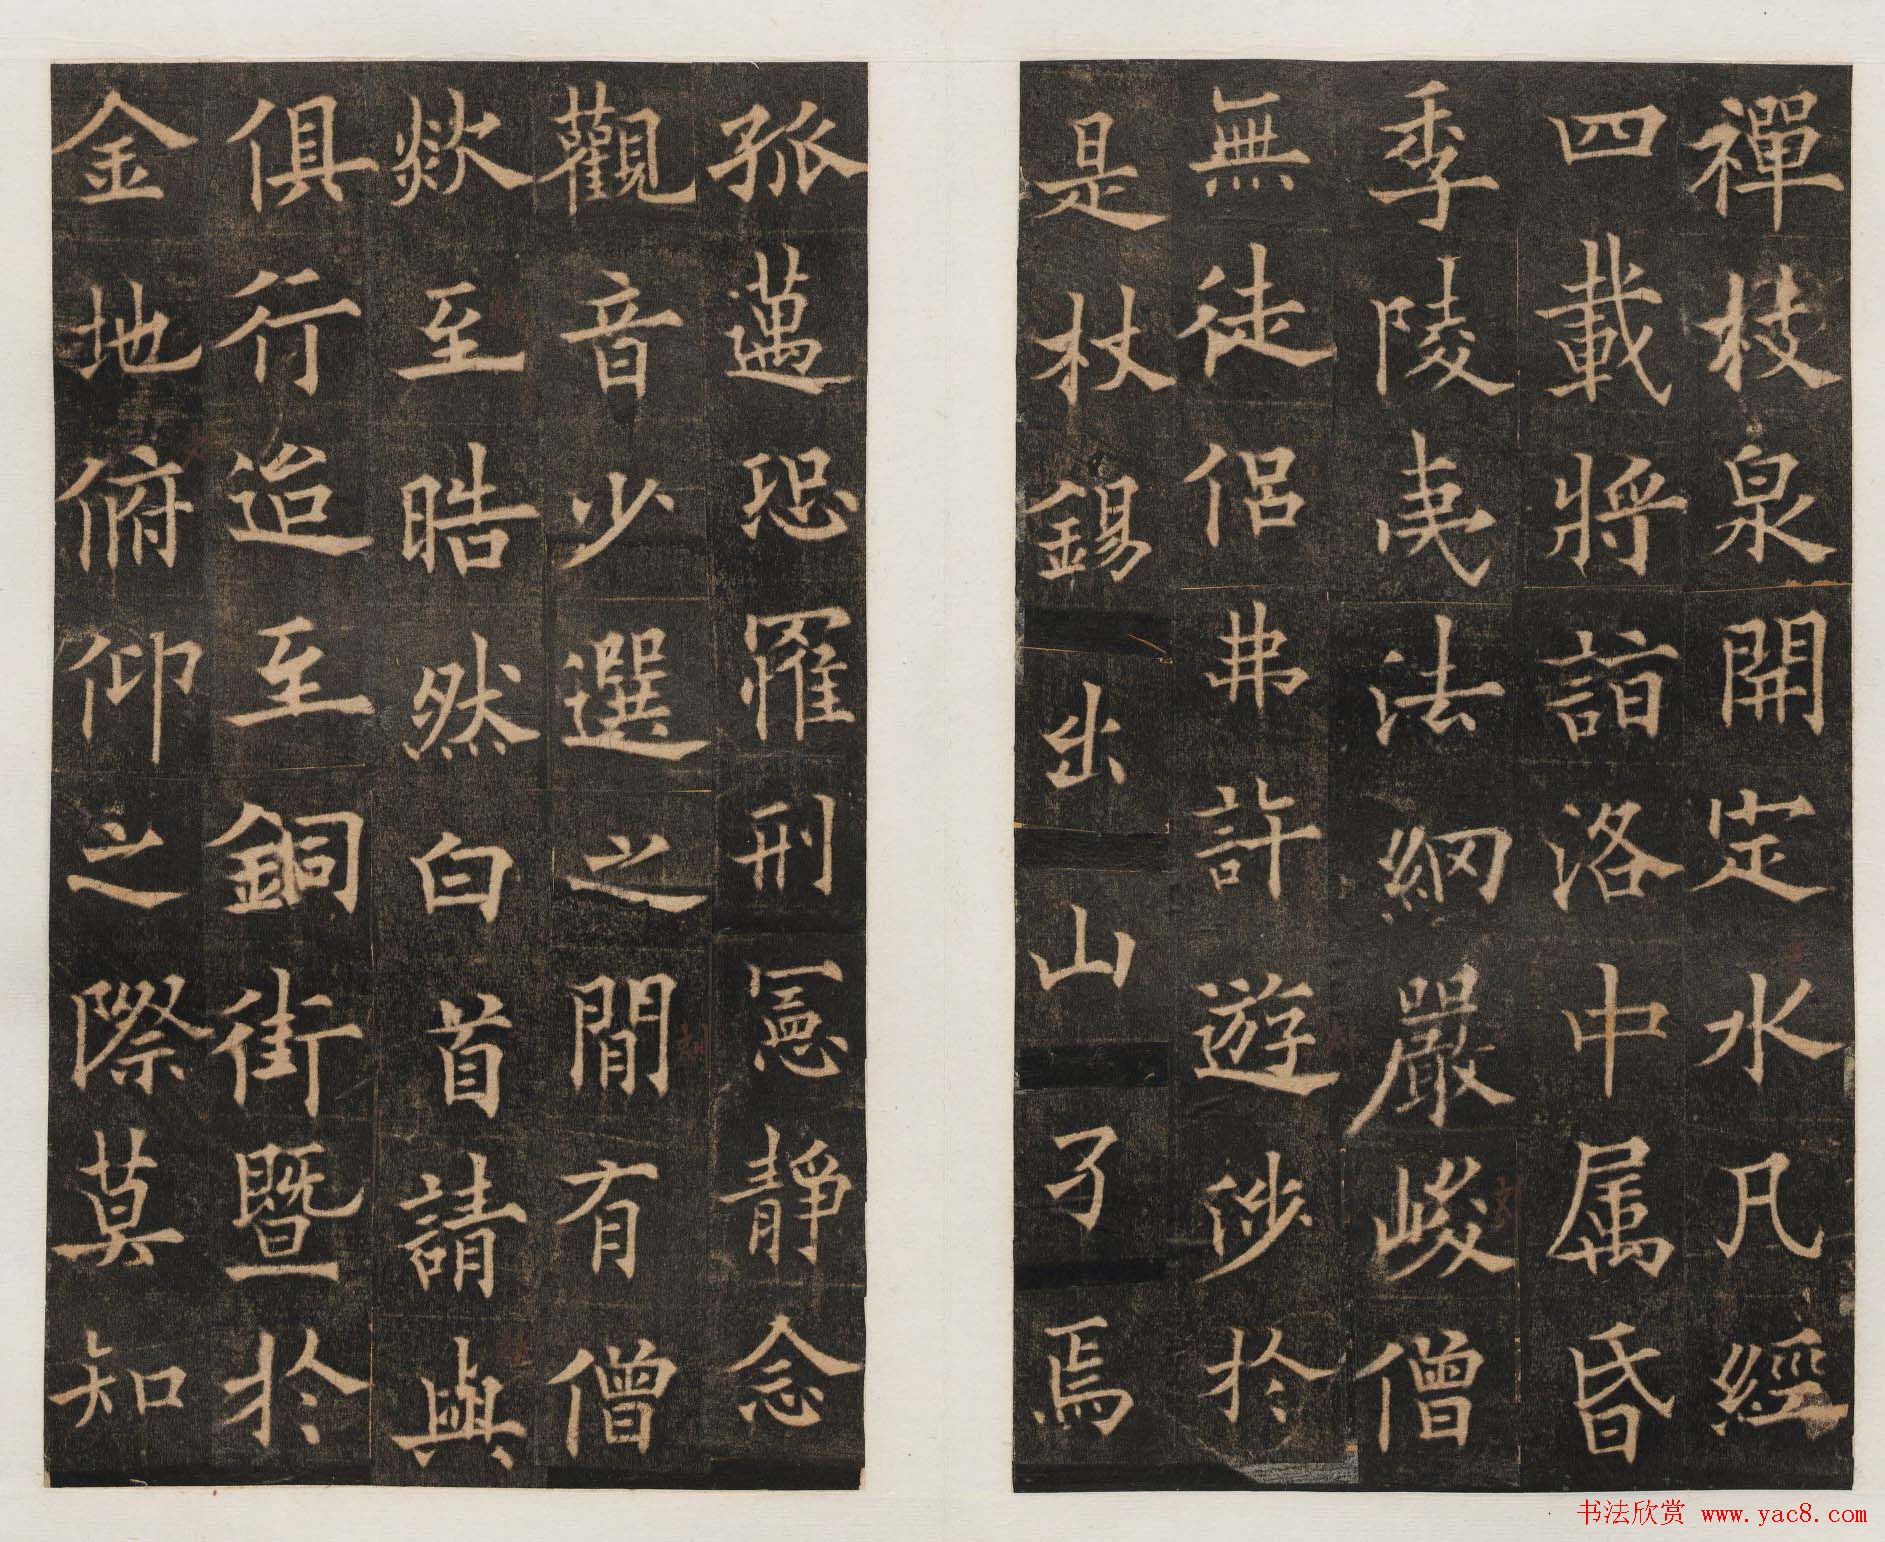 禪枝泉開定水凡經
四載將詣洛中属昏
季陵夷法網嚴峻僧
無徒侶弗許遊涉於
是杖錫出山孑焉
孤邁恐罹刑憲靜念
觀音少選之間有僧
欻至晧然白首請與
俱行迨至銅街暨於
金地俯仰之際莫知
书法欣赏 www.yac8.com